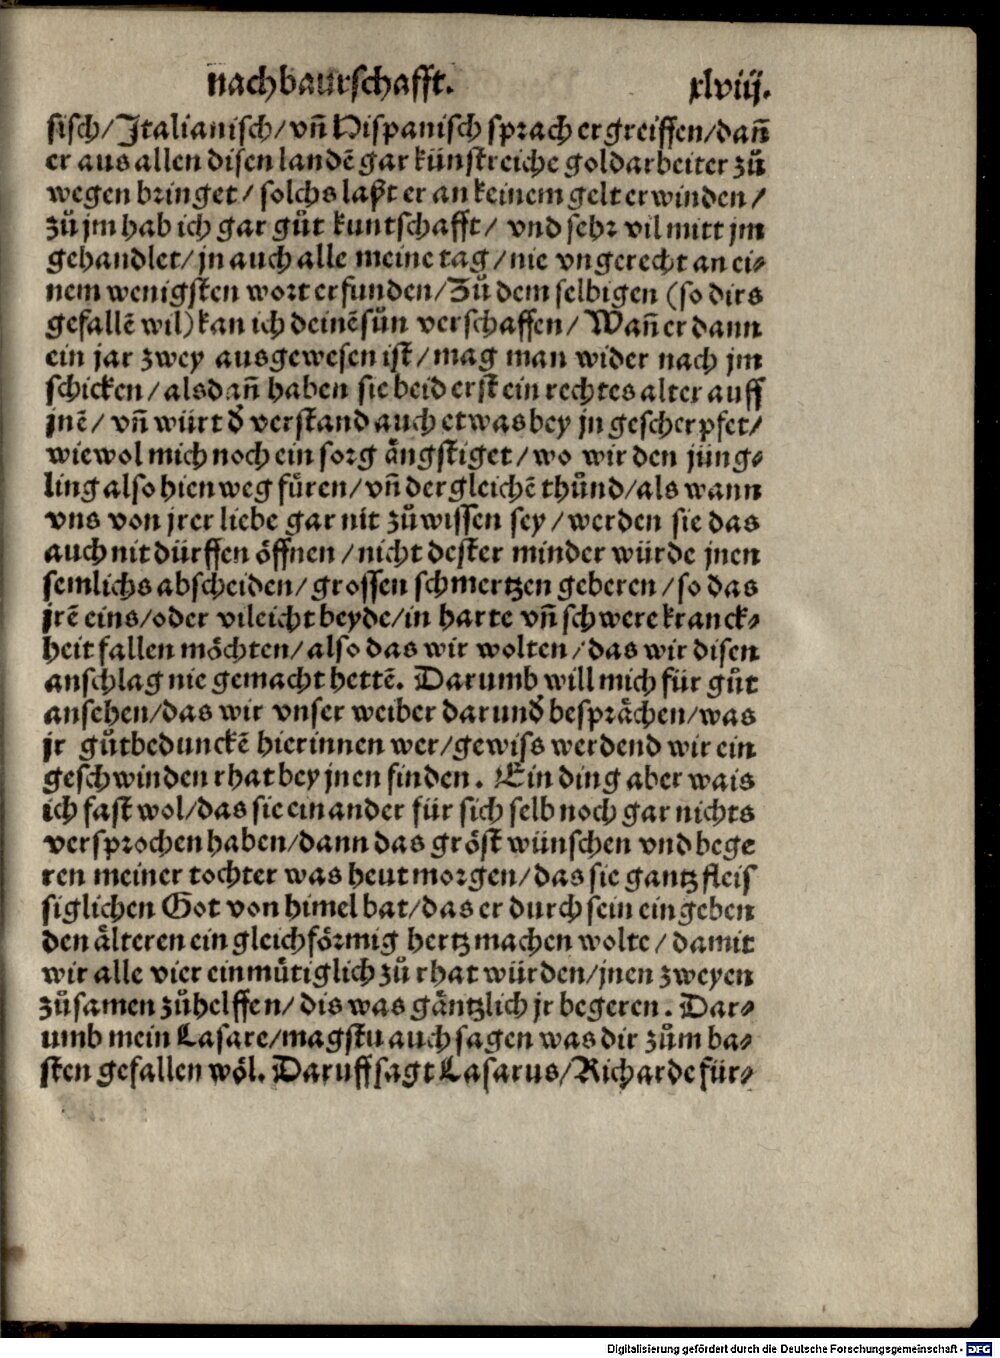 nachbaurschafft. xlviij.
sisch/Italianisch/vñ Hispanisch sprach ergreiffen/dañ
er aus allen disen landẽ gar künstreiche goldarbeiter zů
wegen bringet/ solchs laßt er an keinem gelt erwinden/
zů jm hab ich gar gůt kuntschafft/ vnd sehr vil mitt jm
gehandlet/ jn auch alle meine tag/ nie vngerecht an ei⸗
nem wenigsten wort erfunden/ Zů dem selbigen (so dirs
gefallẽ wil) kan ich deinẽ sůn verschaffen/ Wañ er dann
ein jar zwey ausgewesen ist/ mag man wider nach jm
schicken/ alsdañ haben sie beid erst ein rechtes alter auff
jnẽ/ vñ würt d̕ verstand auch etwas bey jn gescherpfet/
wiewol mich noch ein sorg ängstiget/ wo wir den jüng⸗
ling also hienweg füren/ vñ dergleichẽ thůnd/ als wann
vns von jrer liebe gar nit zůwissen sey/ werden sie das
auch nit dürffen öffnen/ nicht dester minder würde jnen
semlichs abscheiden/ grossen schmertzen geberen/ so das
jrẽ eins/ oder vileicht beyde/ in harte vñ schwere kranck⸗
heit fallen möchten/ also das wir wolten/ das wir disen
anschlag nie gemacht hettẽ. Darumb will mich für gůt
ansehen/ das wir vnser weiber darund̕ besprächen/ was
jr gůtbedunckẽ hierinnen wer/ gewiss werdend wir ein
geschwinden rhat bey jnen finden. Ein ding aber wais
ich fast wol/ das sie einander für sich selb noch gar nichts
versprochen haben/ dann das gröst wünschen vnd bege
ren meiner tochter was heut morgen/ das sie gantz fleis
siglichen Got von himel bat/ das er durch sein eingeben
den älteren ein gleichförmig hertz machen wolte/ damit
wir alle vier einmütiglich zů rhat würden/ jnen zweyen
zůsamen zůhelffen/ dis was gäntzlich jr begeren. Dar⸗
umb mein Lasare/ magstu auch sagen was dir zům ba⸗
sten gefallen wöl. Daruff sagt Lasarus/ Richarde für⸗
Digitalisierung gefördert durch die Deutsche Forschungsgemeinschaft - DFG